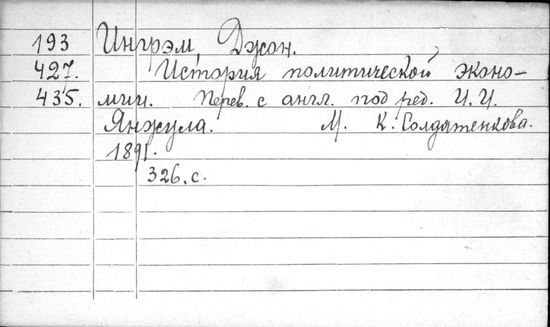 193 Ингрэм, Джон.
427. История политической эконо-
435. мии. Перев. с англ. под ред. И. И.
Янжула. М. К. Солдатенкова.
1891.
326. с.